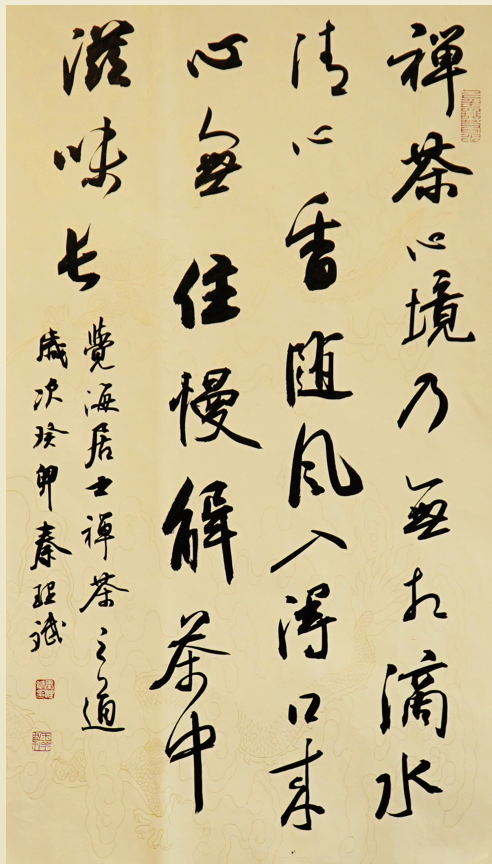 禅茶心境乃無相滴水
清心香随风入得口来
心無住慢解茶中
滋味长
觉海居士禅茶之道
歳次癸卯秦